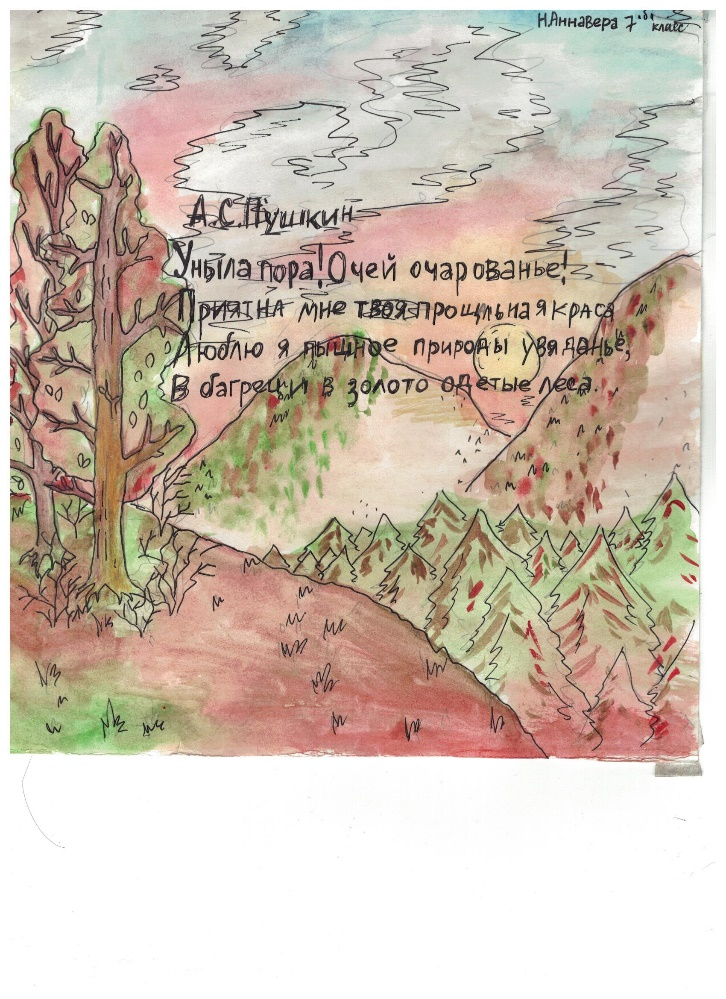 Н.Аннавера 7 "б" класс
А.С.Пушкин
Уныла пора! Очей очарованье!
Приятна мне твоя прощльная краса
Люблю я пышное природы увяданье,
В багрец и в золото одетые леса.